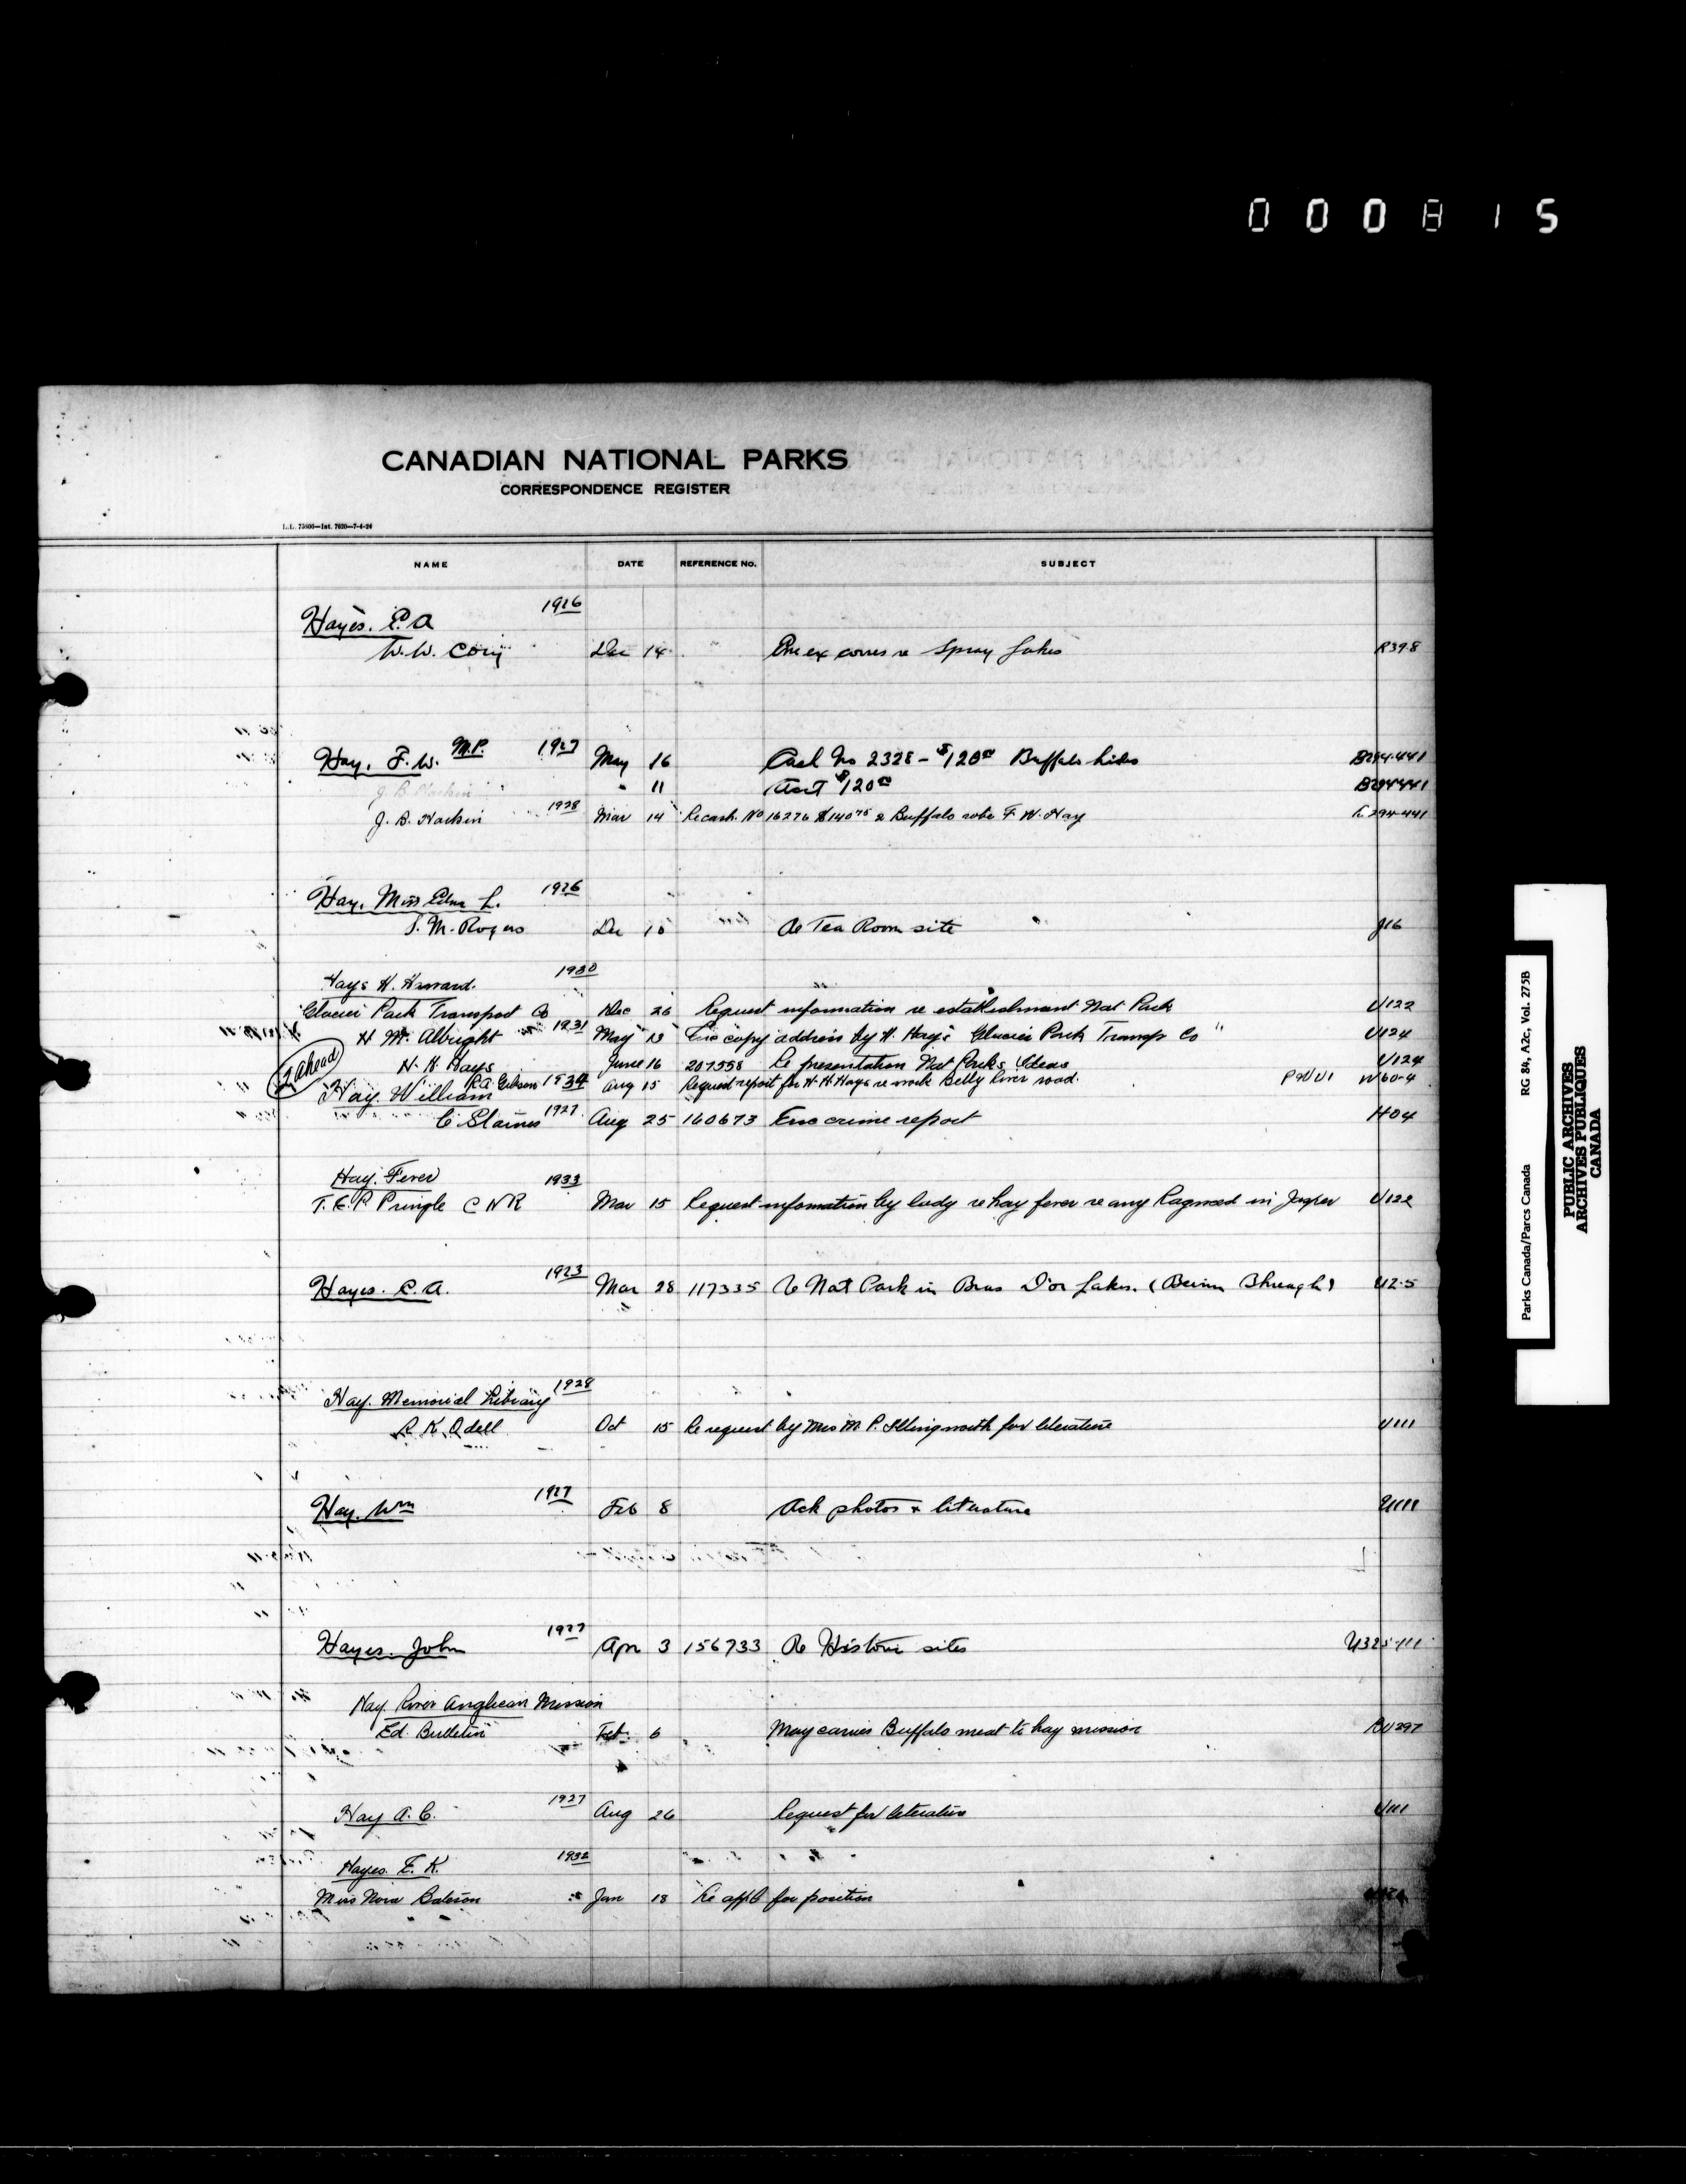 000815
CANADIAN NATIONAL PARKS
CORRESPONDENCE REGISTER
NAME DATE REFERENCE No. SUBJECT
Hayes. E. A 1926
W. W. Cory Dec 14 corres re Spray Lakes R39.8
Hay, F. W. M.P. 1927 May 16 No 2328 - $120 00 Buffalo hides B294-441
" 11 $120 00 B294441
J. B. Harkin 1928 Mar 14 Re cash. No 16276 $140 75 Buffalo robe F. W. Hay 294-441
Hay, Miss Edna L. 1926
S. M. Rogers Dec 10 Re Tea Room site J16
Hays H. Howard. 1930
Glacier Park Transport Co Dec 26 Request information re establishment Nat Park U122
H M. Albright 1931 May 13 Enc copy address by H. Hays Glacier Park Transp Co " U124
H. H. Hays June 16 207558 Re presentation Nat Parks Ideas U124
2 ahead
R. A. Gibson 1934 Aug 15 Request report for H. H. Hays re work Belly River road. W60-4
Hay. William
C Staines 1927 Aug 25 160673 Enc crime report H04
Hay. Fever 1933
T. E. P. Pringle C N R Mar 15 Request information by lady re hay fever re any Ragweed in Jasper U122
Hayes. C. A. 1923 Mar 28 117335 Re Nat Park in Bras D'or Lakes. (Beinn Bhreagh) U2-5
Hay. Memorial Library 1928
R K Odell Oct 15 Re request by Mrs M. P. Illingworth for literature U111
Hay. Wm 1927 Feb 8 Ack photos & literature U111
Hayes. John 1927 Apr 3 156733 Re Historic sites U325-111
Hay River Anglican Mission
Ed. Bulletin Feb 6 May carries Buffalo meat to hay mission BU297
Hay A. C. 1927 Aug 26 Request for literature U111
Hayes. E. K. 1932
Miss Nora Bateson Jan 18 Re applc for position
Parks Canada/Parcs Canada RG 84, A2c, Vol. 2758
PUBLIC ARCHIVES
ARCHIVES PUBLIQUES
CANADA